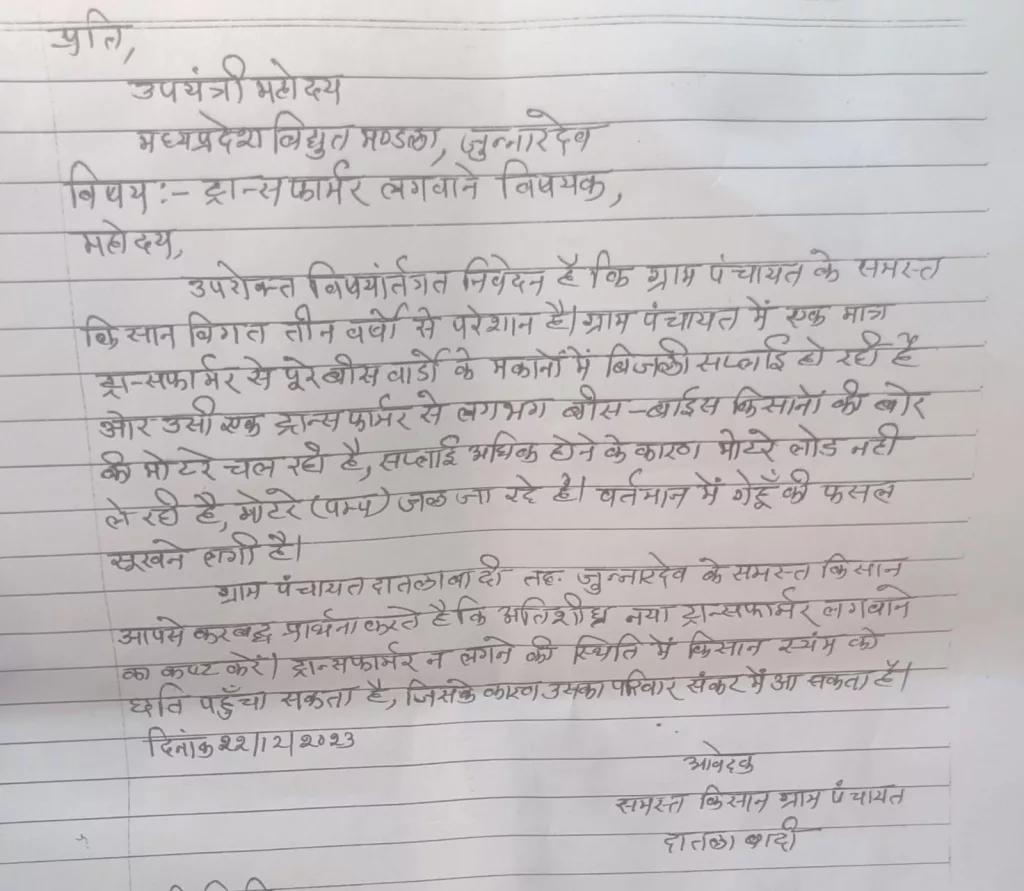 प्रति,
उपयंत्री महोदय
मध्यप्रदेश विद्युत मण्डला, जुन्नारदेव
विषय :- ट्रान्सफार्मर लगवाने विषयक,
महोदय,
उपरोक्त विषयांर्तगत निवेदन है कि ग्राम पंचायत के समस्त
किसान विगत तीन वर्षो से परेशान है। ग्राम पंचायत में एक मात्र
ट्रान्सफार्मर से पूरे बीस वार्डो के मकानों में बिजली सप्लाई हो रही है
ओर उसी एक ट्रान्सफार्मर से लगभग बीस-बाईस किसानों की बोर
की मोटरे चल रही है, सप्लाई अधिक होने के कारण मोटरे लोड नही
ले रही है, मोटरे (पम्प) जल जा रहे है। वर्तमान में गेहूँ की फसल
सूखने लगी है।
ग्राम पंचायत दातलावादी तह. जुन्नारदेव के समस्त किसान
आपसे करबद्ध प्रार्थना करते है कि अतिशीध्र नया ट्रान्सफार्मर लगवाने
का कष्ट करें। ट्रान्सफार्मर न लगने की स्थिति में किसान स्यंम को
छति पहुँचा सकता है, जिसके कारण उसका परिवार संकट में आ सकता है।
दिनांक 22/12/2023
आवेदक
समस्त किसान ग्राम पंचायत
दातला वादी